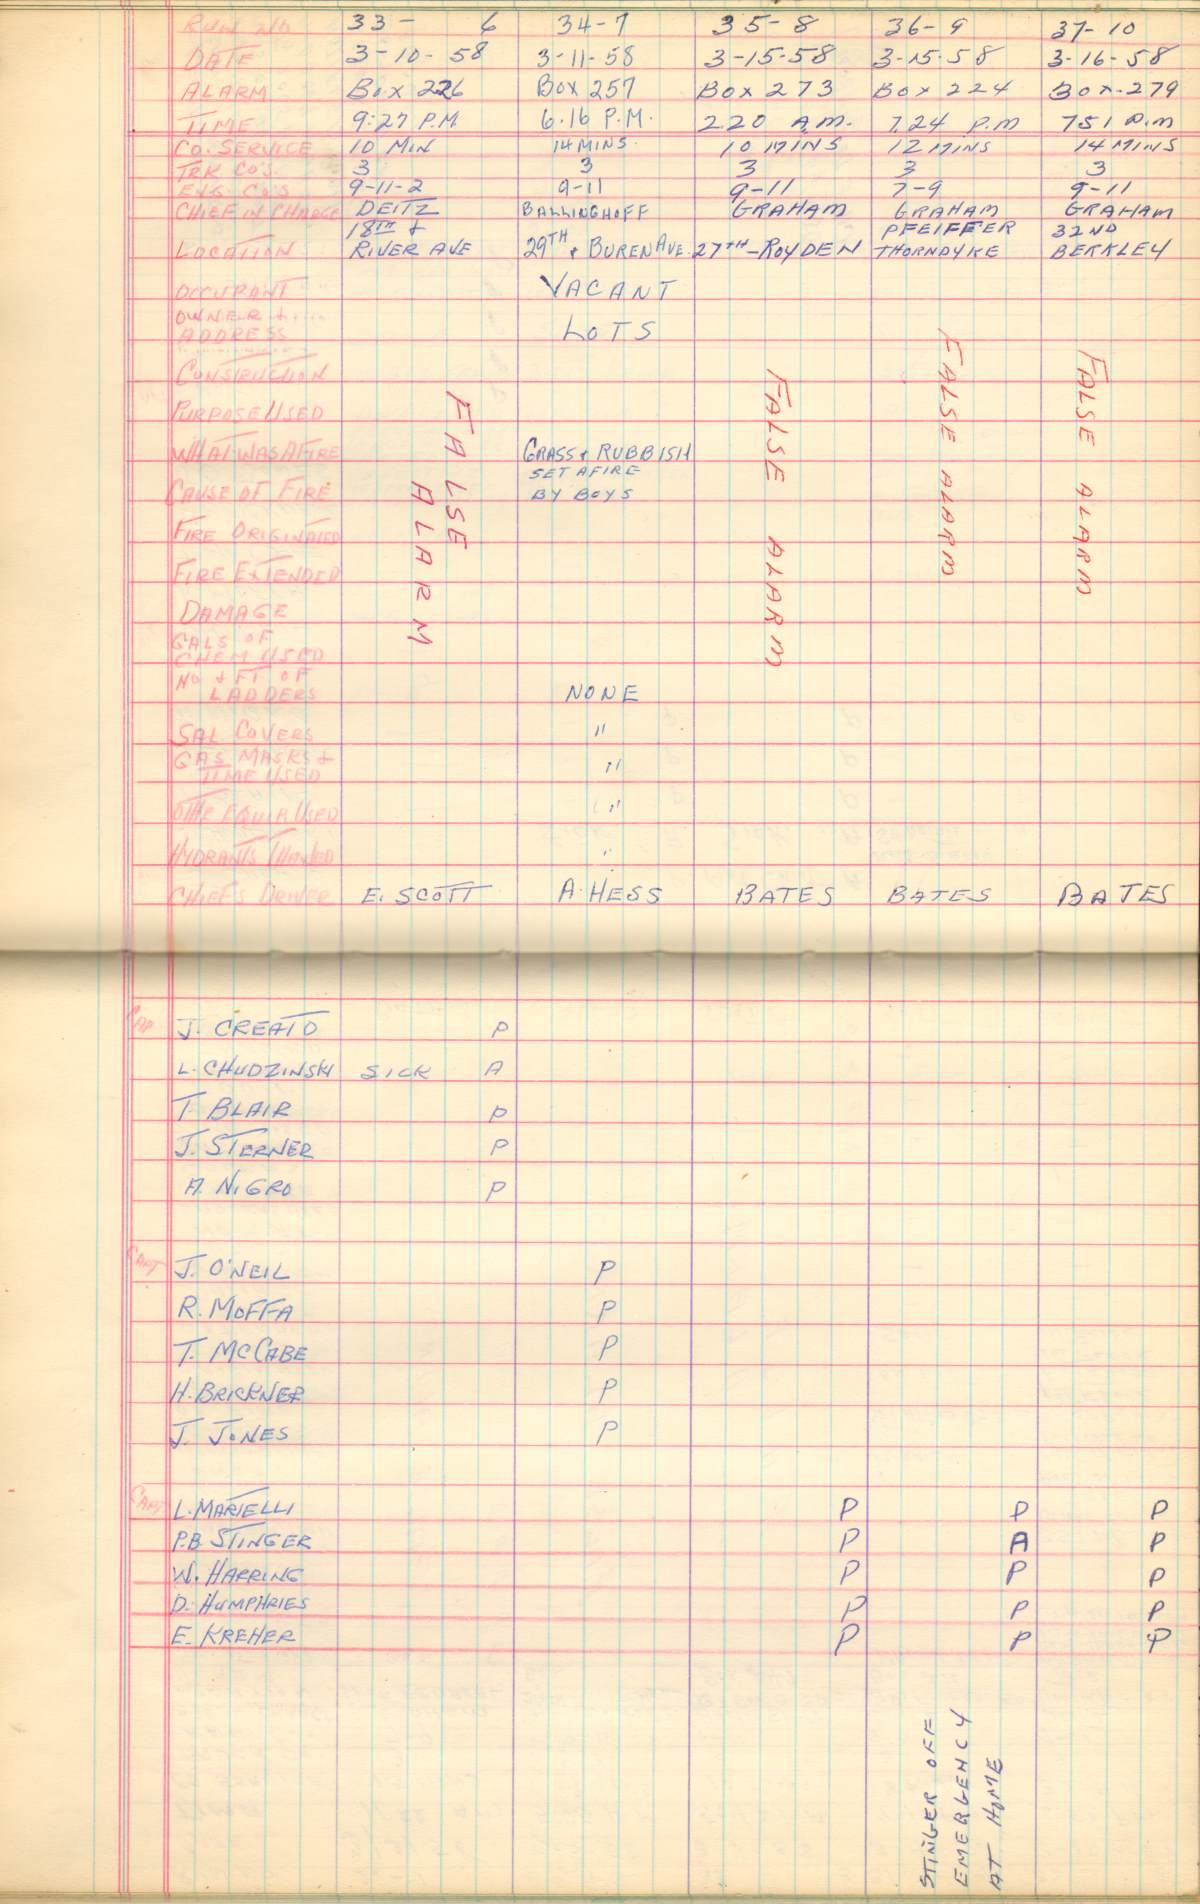 RUN NO 33- 6 34-7 35-8 36-9 37-10
DATE 3-10-58 3-11-58 3-15-58 3-15-58 3-16-58
ALARM BOX 226 BOX 257 BOX 273 BOX 224 BOX-279
TIME 9:27 P.M 6.16 P.M. 2.20 A.M. 7.24 P.M 751 P.M
CO. SERVICE 10 MIN 14 MINS. 10 MINS 12 MINS 14 MINS
TRK CO'S 3 3 3 3 3
ENG. CO'S 9-11-2 9-11 9-11 7-9 9-11
CHIEF IN CHARGE DEITZ BALLINGHOFF GRAHAM GRAHAM GRAHAM
18TH & PFEIFFER 32ND
LOCATION RIVER AVE 29TH & BUREN AVE. 27TH-ROYDEN THORNDYKE BERKLEY
OCCUPANT VACANT
OWNER &
ADDRESS LOTS
CONSTRUCTION
PURPOSE USED
WHAT WAS AFIRE GRASS & RUBBISH
SET AFIRE
CAUSE OF FIRE BY BOYS
FIRE ORIGINATED
FIRE EXTENDED
DAMAGE
GALS OF
CHEM USED
NO & FT OF
LADDERS NONE
SAL COVERS "
GAS MASKS &
TIME USED "
OTHE EQUIP USED "
HYDRANTS "
CHIEF'S DRIVER E. SCOTT A. HESS BATES BATES BATES
FALSE
ALARM
FALSE ALARM
FALSE ALARM
FALSE ALARM
CAP J. CREATO P
L. CHUDZINSKI SICK A
T BLAIR P
J. STERNER P
A. NIGRO P
CAPT J. O'NEIL P
R. MOFFA P
T. MCCABE P
H. BRICKNER P
J. JONES P
CAPT L. MARTELLI P P P
P.B. STINGER P A P
W. HARRING P P P
D. HUMPHRIES P P P
E. KREHER P P P
STINGER OFF
EMERGENCY
AT HOME